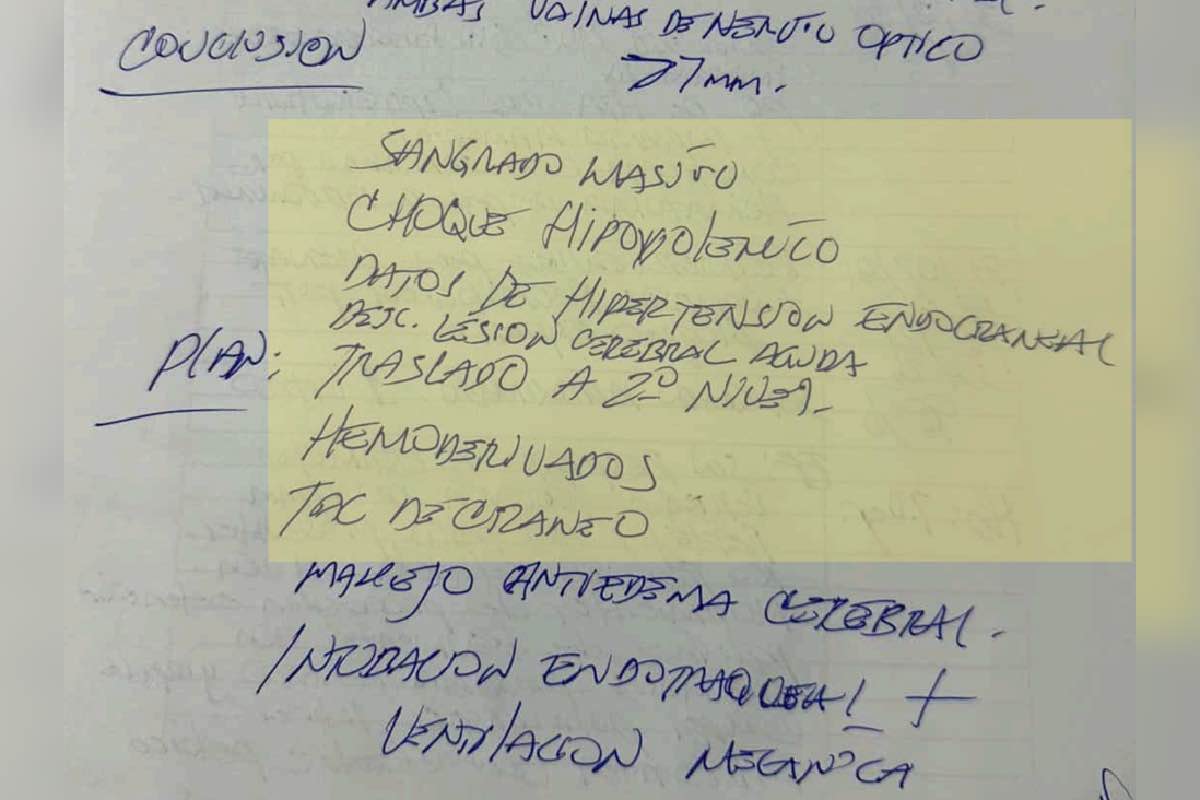 AMBAS VAINAS DE NERVIO OPTICO
CONCLUSION >7mm.
SANGRADO MASIVO
CHOQUE HIPOVOLEMICO
DATOS DE HIPERTENSION ENDOCRANEAL
DESC. LESION CEREBRAL AGUDA
PLAN: TRASLADO A 2º NIVEL
HEMODERIVADOS
TAC DE CRANEO
MANEJO ANTIEDEMA CEREBRAL.
INTUBACION ENDOTRAQUEAL +
VENTILACION MECANICA